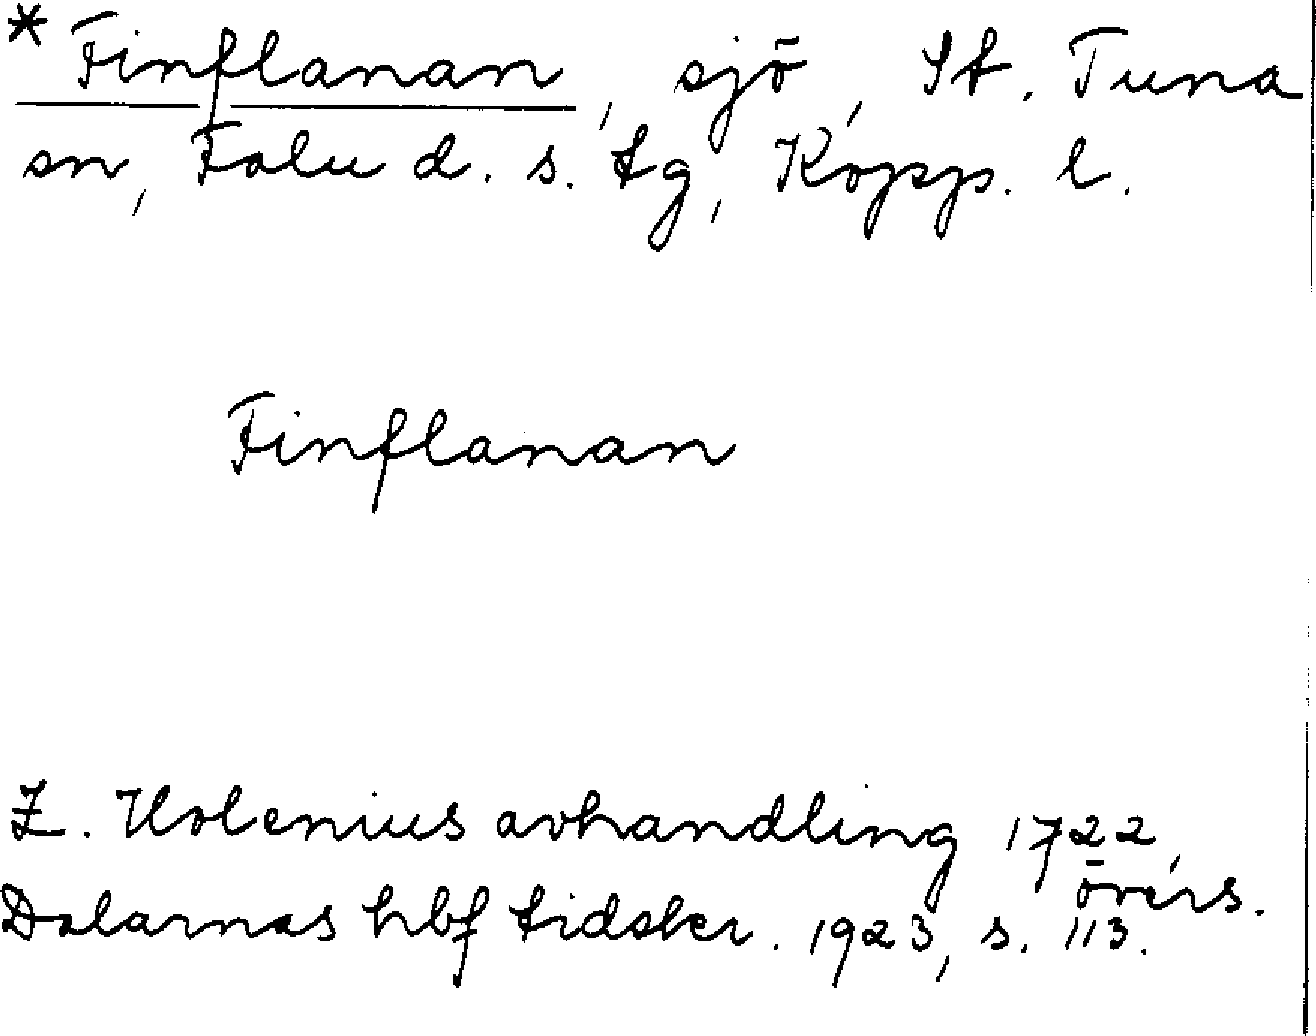 * Finflanan, sjö, St. Tuna
sn, Falu d. s. tg, Kopp. l.
Finflanan
Z. Holenius avhandling 1722,
övers.
Dalarnas hbf tidskr. 1923, s. 113.